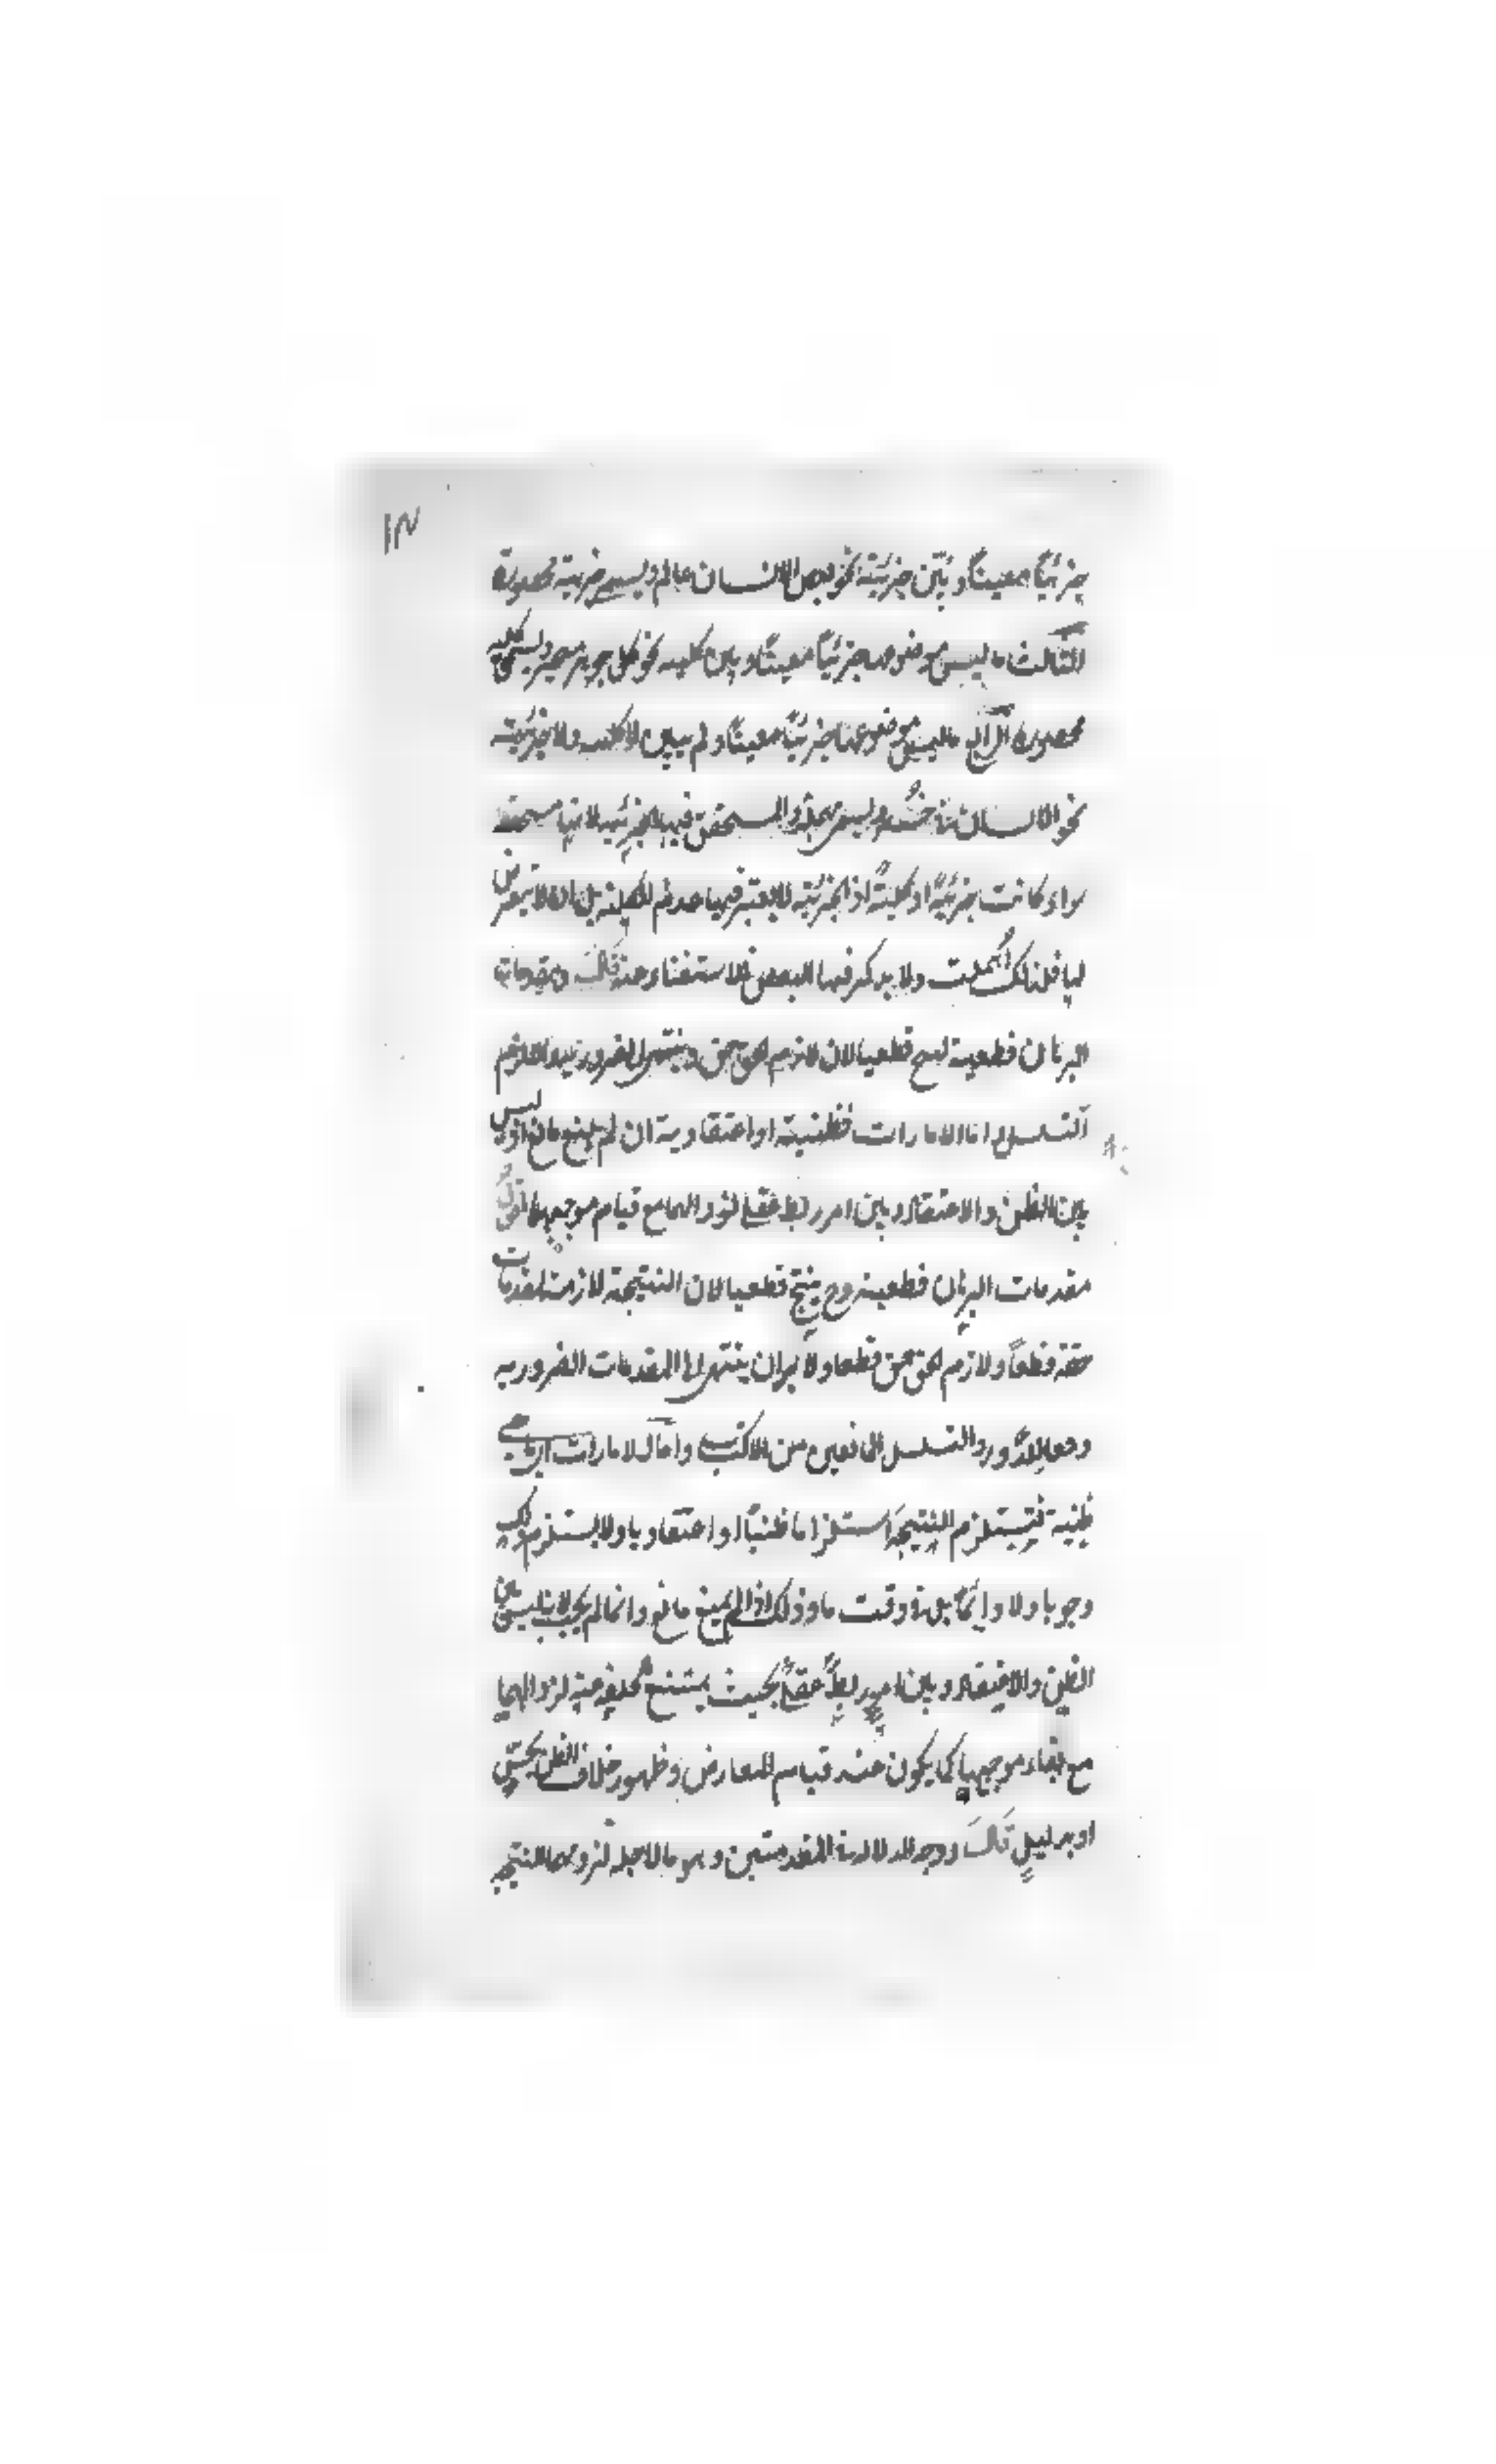 ١٣
جزئيا معينا وبين جزئيته نحو بعض الانسان عالم ويسمى جزئية محصورة
الثالث ما ليس موضوعها جزئيا معينا وبين كليته نحو كل جوهر متحيز ويسمى كلية
محصورة الرابع ما ليس موضوعها جزئيا معينا ولم يبين لا كليته ولا جزئيته
نحو الانسان في خسر ويسمى مهملة والمتحقق فيها الجزئية لانها متحققة
سواء كانت جزئية او كلية اذ الجزئية لا يعتبر فيها عدم الكلية بل ان لا يتعرض
لها فلذلك اهملت ولا يذكر فيها البعض للاستغناء عنه قال ومقدمات
البرهان قطعية لتنتج قطعيا لان لازم الحق حق وينتهي الى ضرورية والا لزم
التسلسل واما الامارات فظنية او اعتقادية ان لم يمنع مانع اذ ليس
بين الظن والاعتقاد وبين امر ربط عقلي لزوالهما مع قيام موجبهما اقول
مقدمات البرهان قطعية وح ينتج قطعيا لان النتيجة لازمة لمقدمات
حقة قطعا ولازم الحق حق قطعا ولا بد ان ينتهي الى المقدمات الضرورية
دفعا للدور والتسلسل المانعين من الاكتساب واما الامارات اي هي
ظنية فتستلزم النتيجة استلزاما ظنيا او اعتقاديا ولا يستلزم ذلك
وجوبا ولا دائما بل في وقت ما وذلك اذا لم يمنع مانع وانما لم يجب لانه ليس بين
الظن والاعتقاد وبين امر ربط عقلي بحيث يمتنع تخلفه عنه لزوالهما
مع بقاء موجبهما كما يكون عند قيام المعارض وظهور خلاف الظن بحس
او بدليل قال ووجه الدلالة في المقدمتين وهو ما لاجله لزومهما النتيجة